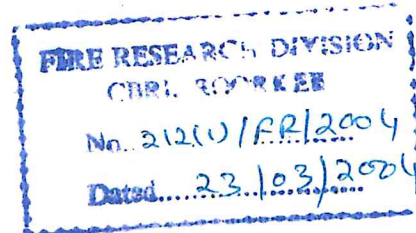 FIRE RESEARCH DIVISION
CBRI, ROORKEE
No. 212(1)/FR/2004
Dated......23/03/2004